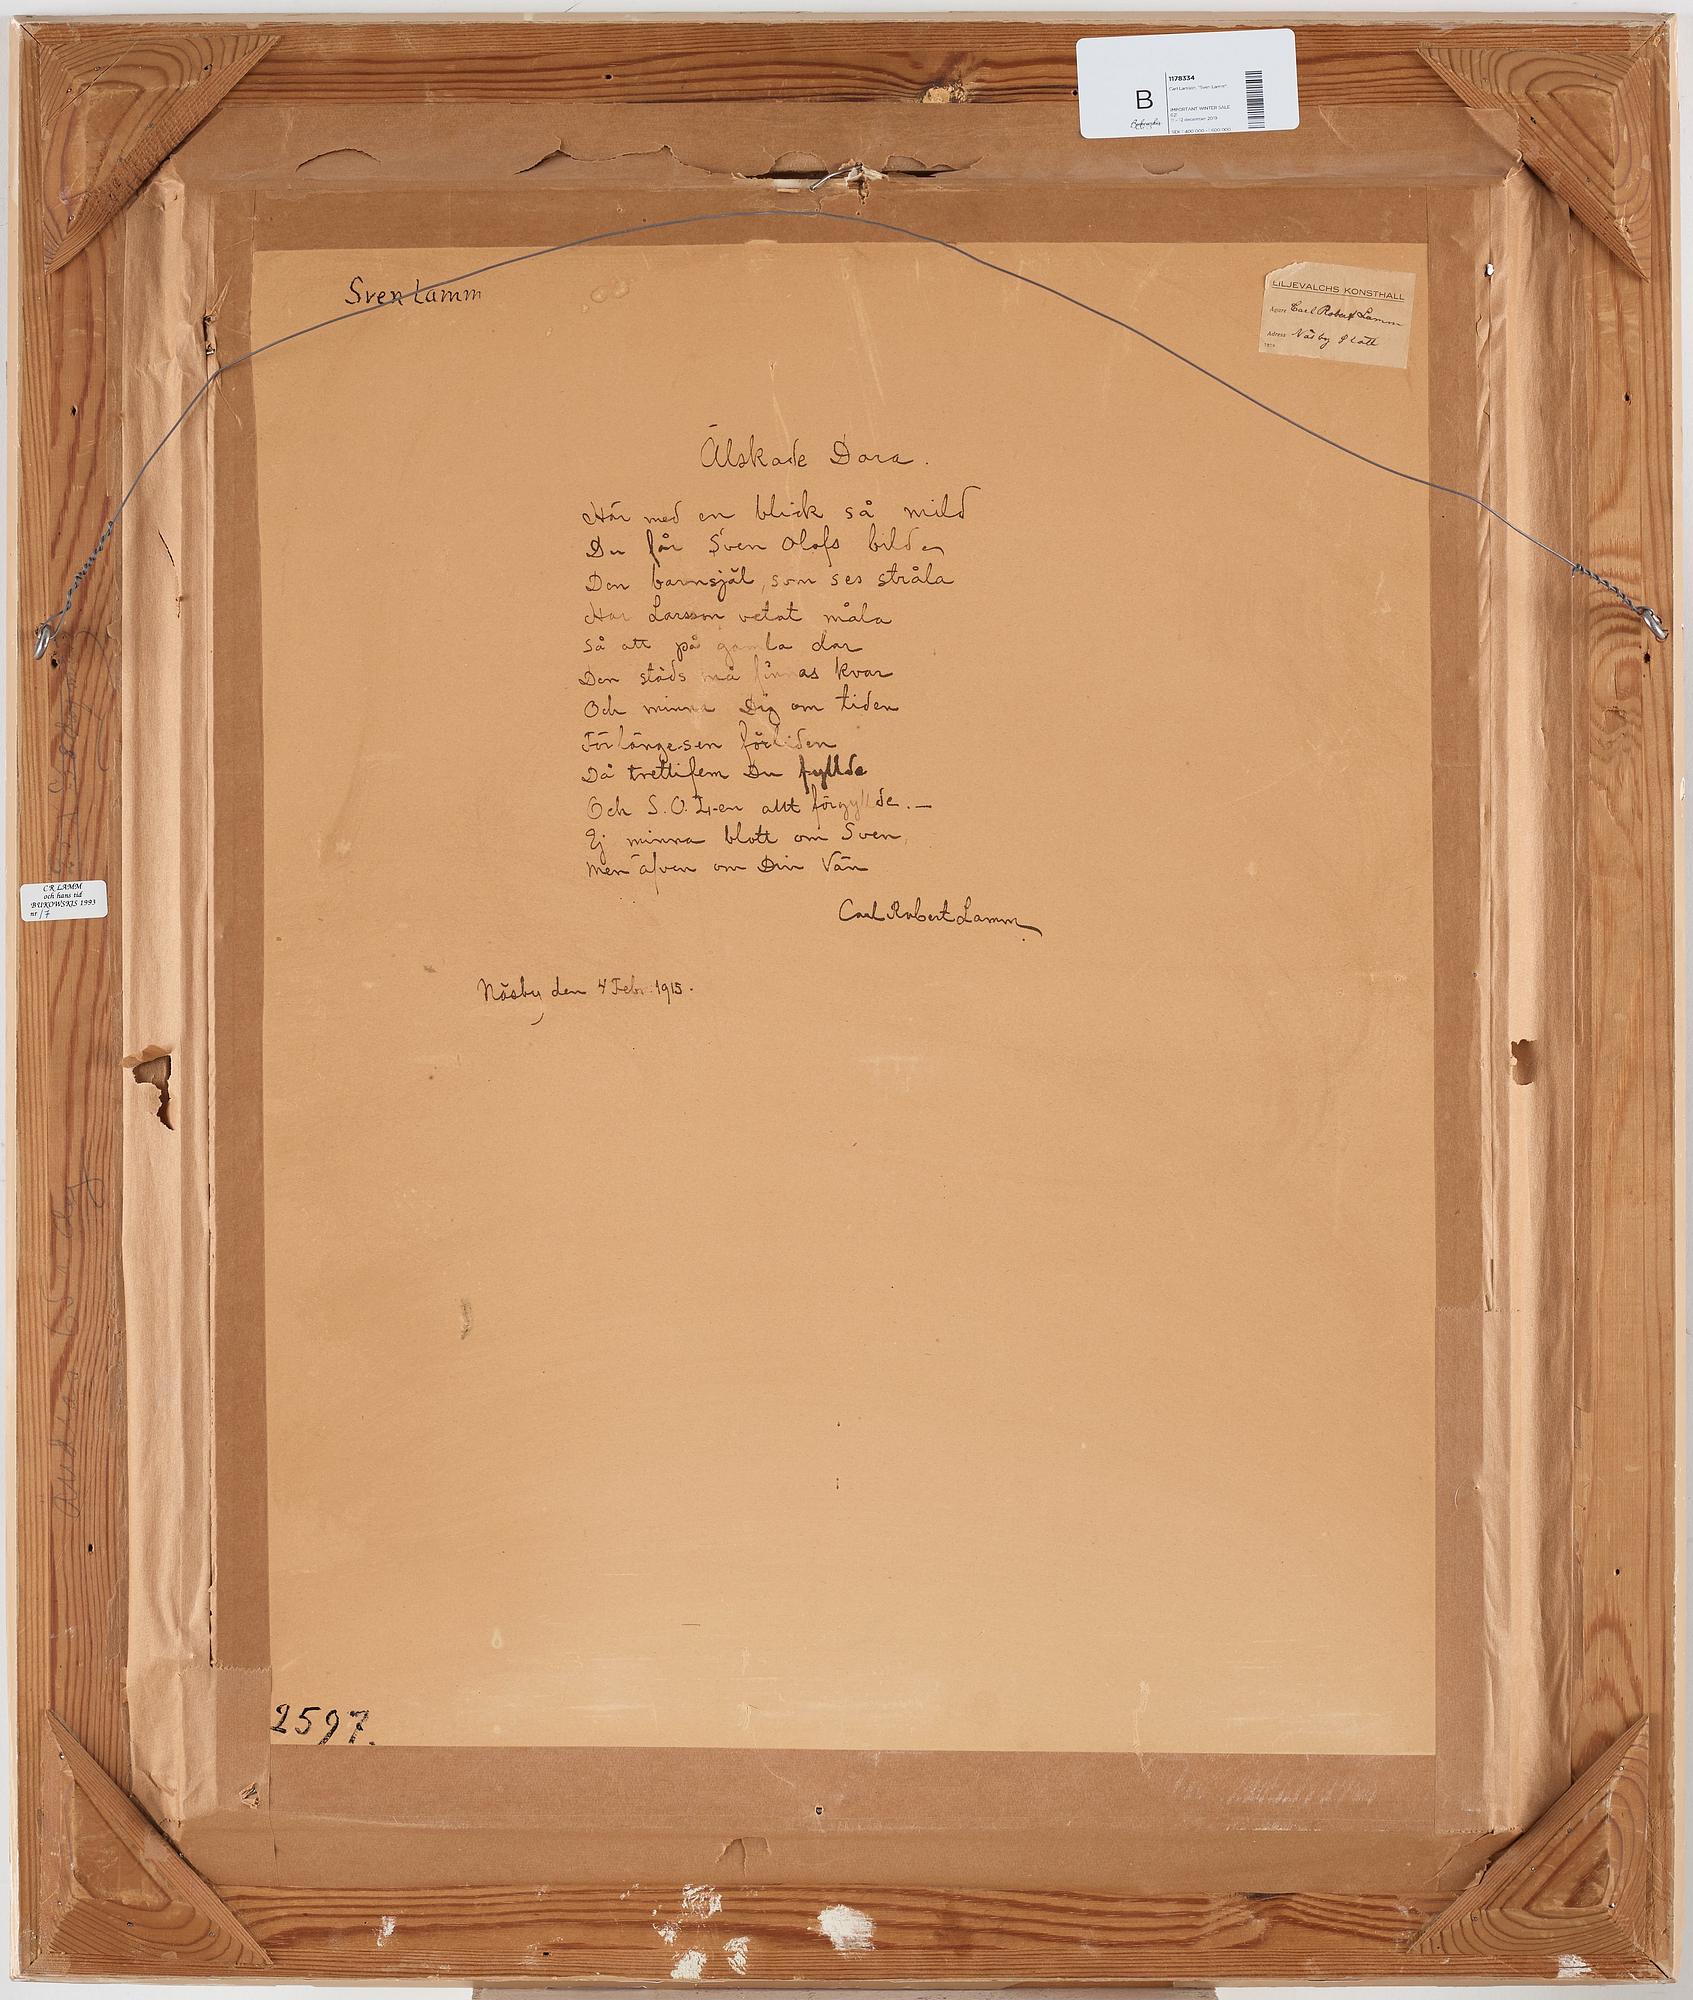 B
1178334
Carl Larsson, "Sven Lamm".
IMPORTANT WINTER SALE
621
11 – 12 december 2019
Bukowskis
Sven Lamm
LILJEVALCHS KONSTHALL
Ägare Carl Robert Lamm
Adress Näsby Slott
Älskade Dora.
Här med en blick så mild
Du får Sven Olofs bild
Den barnsjäl, som ses stråla
Har Larsson vetat måla
Så att på gamla dar
Den städs må finnas kvar
Och minna Dig om tiden
För länge sen förliden
Då trettifem Du fyllde
Och S.O. L-en allt förgyllde. —
Ej minna blott om Sven,
Men äfven om Din Vän
Carl Robert Lamm
Näsby den 4 Febr. 1915.
C R LAMM
och hans tid
BUKOWSKIS 1993
nr 17
2597.